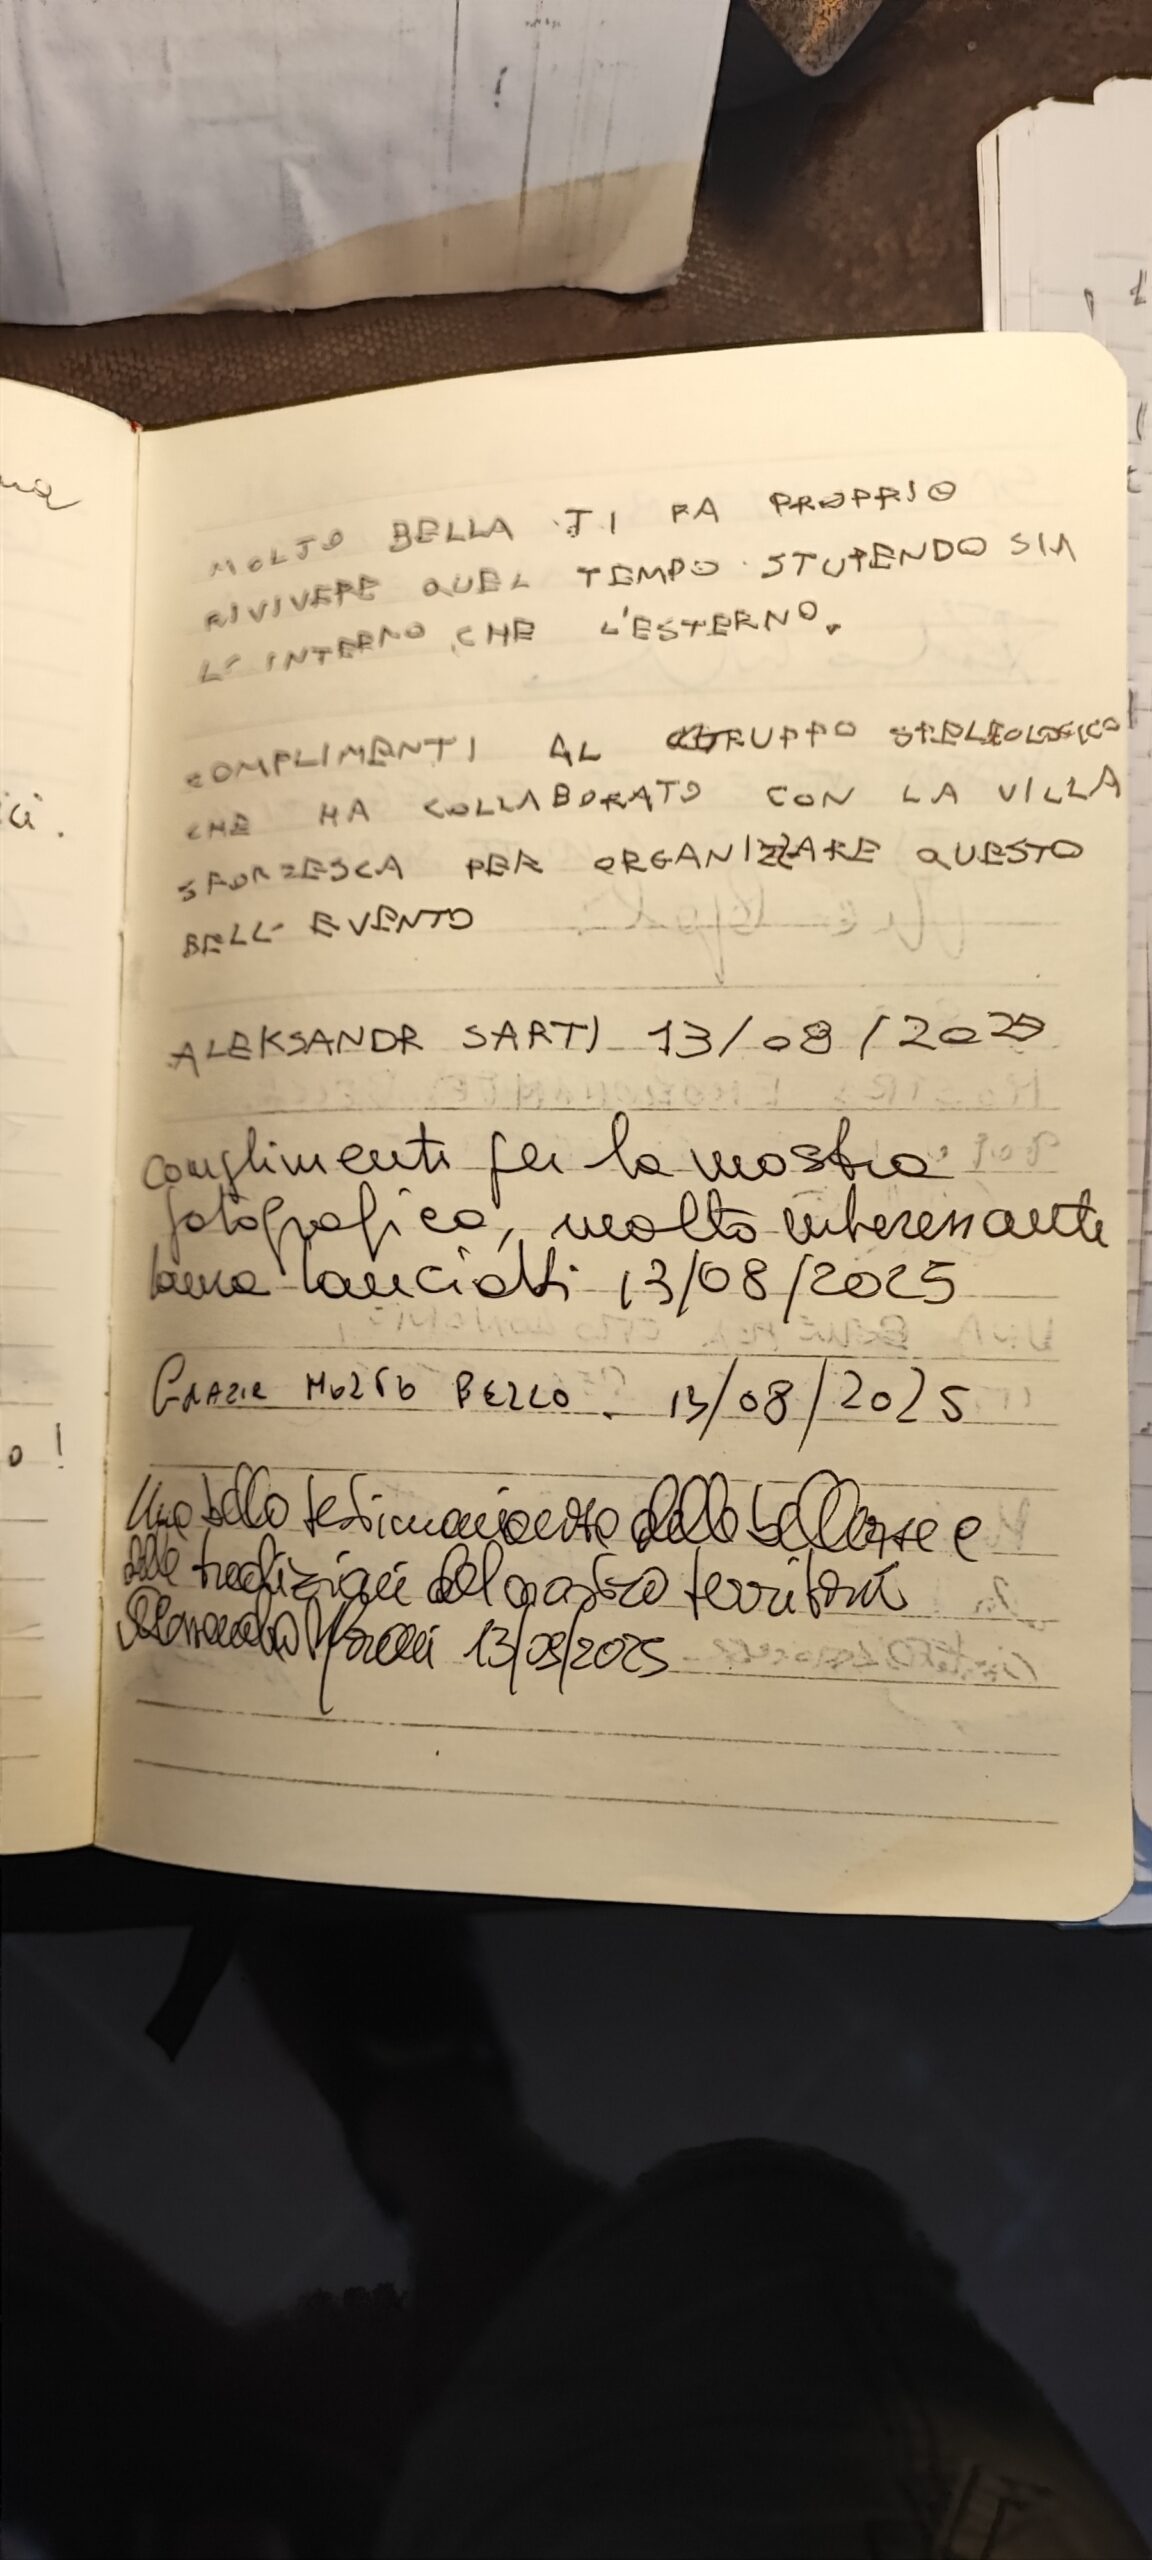 MOLTO BELLA TI FA PROPRIO
RIVIVERE QUEL TEMPO STUPENDO SIA
L'INTERNO CHE L'ESTERNO.
COMPLIMENTI AL GRUPPO SPELEOLOGICO
CHE HA COLLABORATO CON LA VILLA
SFORZESCA PER ORGANIZZARE QUESTO
BELL'EVENTO
ALEKSANDR SARTI 13/08/2025
complimenti per la mostra
fotografica, molto interessante
13/08/2025
GRAZIE MOLTO BELLO. 13/08/2025
Una bella testimonianza delle bellezze e
delle tradizioni del nostro territorio
13/08/2025